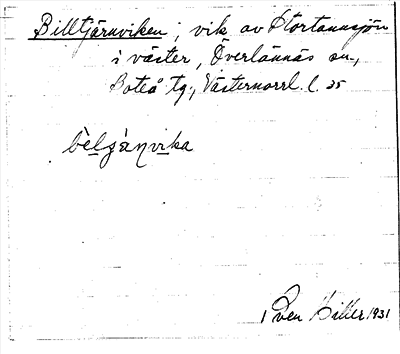 Billtjärnviken; vik av Stortannsjön
i väster, Överlännäs sn.,
Boteå tg., Västernorrl. l. 35
bèlgánvika
Sven Hiller 1931